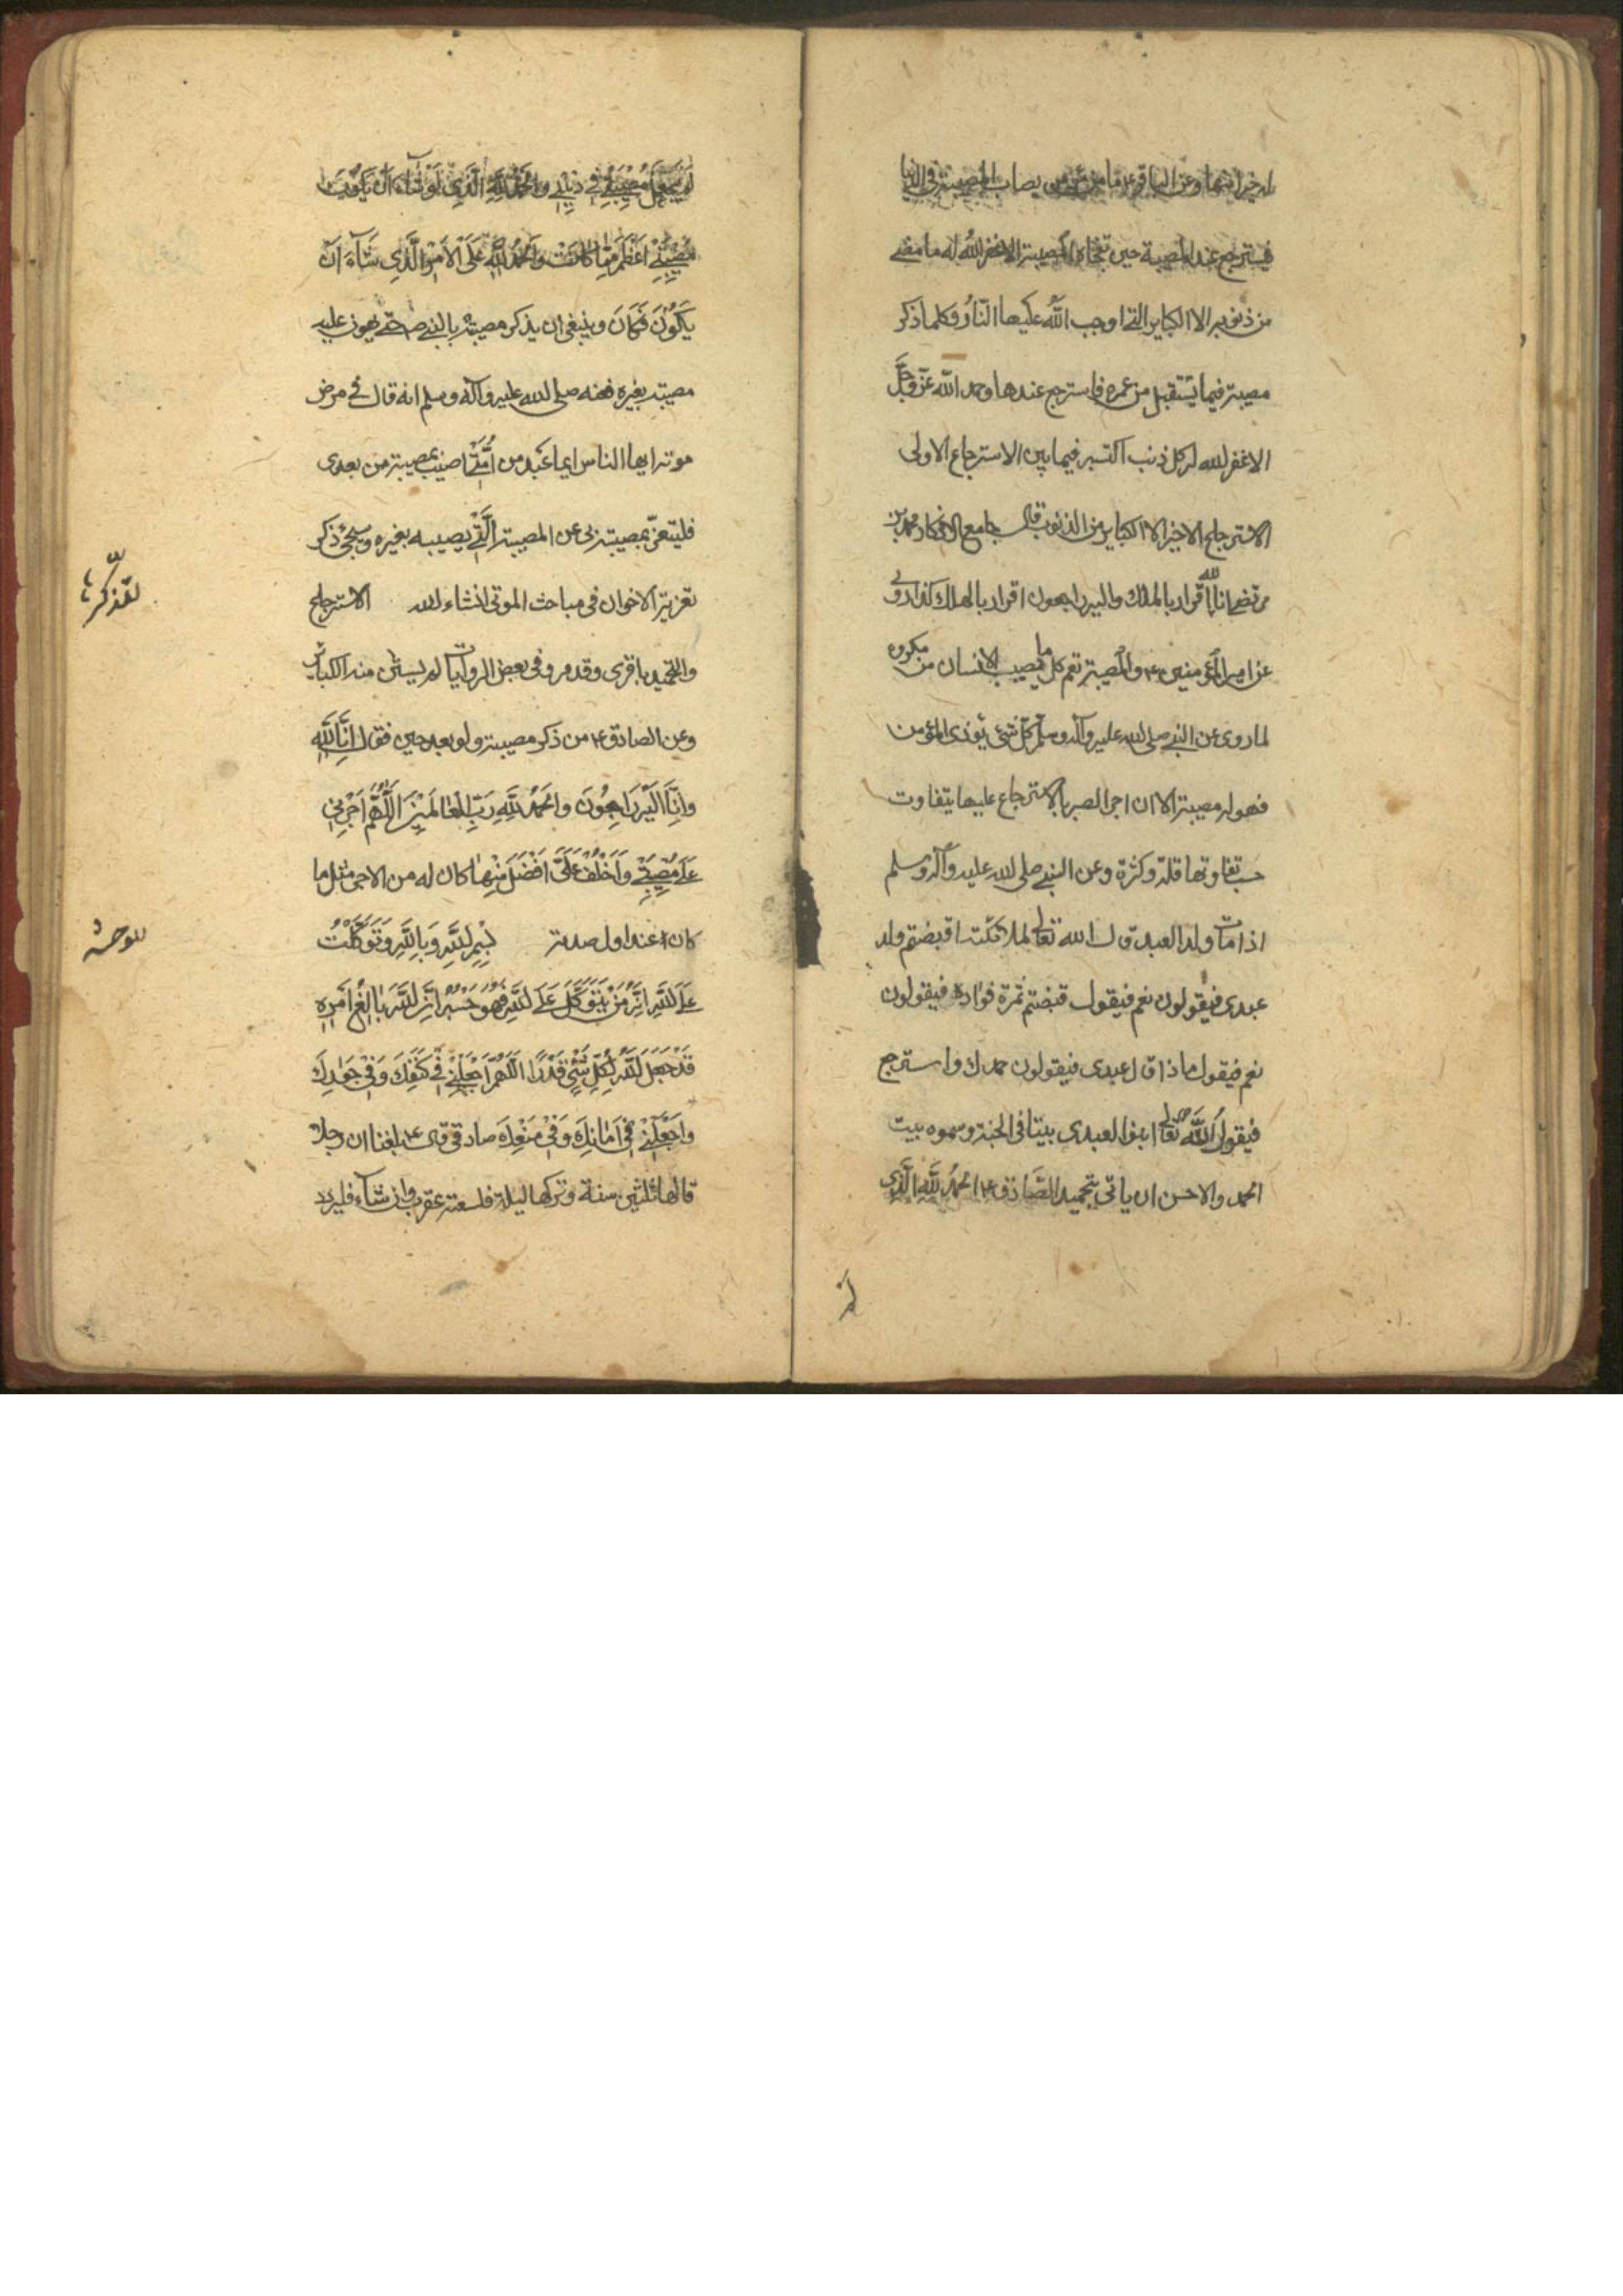 له خيرا منها وعن الباقر ع ما من مؤمن يصاب بمصيبة في الدنيا
فيسترجع عند المصيبة حين تفجاه المصيبة الا غفر الله له ما مضى
من ذنوبه الا الكباير التي اوجب الله عليها النار وكلما ذكر
مصيبة فيما يستقبل من عمره فاسترجع عندها وحمد الله عز وجل
الا غفر الله له كل ذنب اكتسبه فيما بين الاسترجاع الاولى
الاسترجاع الاخير الا الكباير من الذنوب قال جامع الافكار محمد بن
مرتضى انا لله اقرار بالملك واليه راجعون اقرار بالهلك كذا روي
عن امير المؤمنين ع والمصيبة تعم كل ما يصيب الانسان من مكروه
لما روى عن النبي صلى الله عليه وآله وسلم كل شئ يؤذى المؤمن
فهو له مصيبة الا ان اجر الصبر بالاسترجاع عليها يتفاوت
حسب تفاوتها قلة وكثرة وعن النبي صلى الله عليه وآله وسلم
اذا مات ولد العبد قال الله تعالى لملائكته اقبضتم ولد
عبدى فيقولون نعم فيقول قبضتم ثمرة فؤاده فيقولون
نعم فيقول ماذا قال عبدى فيقولون حمدك واسترجع
فيقول الله تعالى ابنوا لعبدى بيتا فى الجنة وسموه بيت
الحمد والاحسن ان ياتى بتحميد الصادق ع الحمد لله الذي
لم
لَمْ يَجْعَلْ مُصِيبَتِي فِي دِينِي وَالْحَمْدُ لِلَّهِ الَّذِي لَوْ شَآءَ اَنْ يَكُونَ
مُصِيبَتِي اَعْظَمَ مِمَّا كَانَتْ وَالْحَمْدُ لِلَّهِ عَلَى الْاَمْرِ الَّذِي شَآءَ اَنْ
يَكُونَ فَكَانَ وينبغى ان يذكر مصيبته بالنبي ص حتى يهون عليه
مصيبته بغيره فعنه صلى الله عليه وآله وسلم انه قال في مرض
موته ايها الناس ايما عبد من اُمَّتي اصيب بمصيبة من بعدى
فليتعزّ بمصيبته بى عن المصيبة الَّتي يصيبه بغيره وسيجئ ذكر
تعزية الاخوان فى مباحث الموتى انشاء الله الاسترجاع
لتذكرها
والتحميد باقرى وقد مر وفى بعض الروايات لم يستثن منه الكباير
وعن الصادق ع من ذكر مصيبته ولو بعد حين فقال اِنَّا لِلَّهِ
وَاِنَّا اِلَيْهِ رَاجِعُونَ وَالْحَمْدُ لِلَّهِ رَبِّ الْعَالَمِينَ اَللَّهُمَّ اَجِرْنِي
عَلَى مُصِيبَتِي وَاَخْلِفْ عَلَيَّ اَفْضَلَ مِنْهَا كان له من الاجر مثل ما
كان عند اول صدمة بِسْمِ اللَّهِ وَبِاللَّهِ وَتَوَكَّلْتُ
للوحشة
عَلَى اللَّهِ اِنَّهُ مَنْ يَتَوَكَّلْ عَلَى اللَّهِ فَهُوَ حَسْبُهُ اِنَّ اللَّهَ بَالِغُ اَمْرِهِ
قَدْ جَعَلَ اللَّهُ لِكُلِّ شَيْءٍ قَدْرًا اَللَّهُمَّ اجْعَلْنِي فِي كَنَفِكَ وَفِي جِوَارِكَ
وَاجْعَلْنِي فِي اَمَانِكَ وَفِي مَنْعِكَ صادقى قال ع بلغنا ان رجلا
قالها ثلثين سنة وتركها ليلة فلسعته عقرب وان شآء فليزد